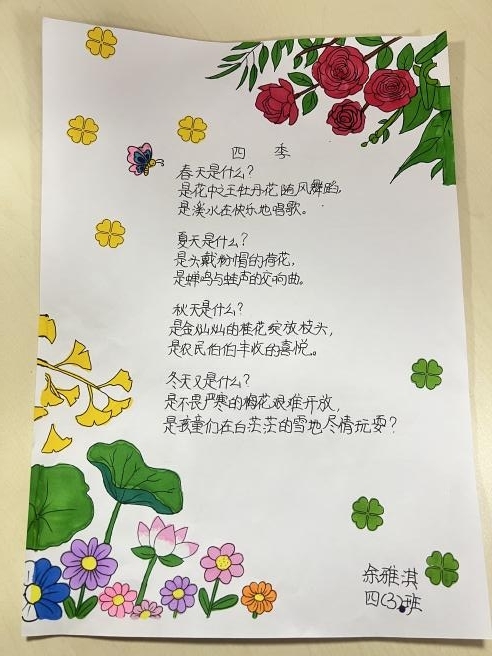 四季
春天是什么？
是花中之王牡丹花随风舞蹈，
是溪水在快乐地唱歌。
夏天是什么？
是头戴粉帽的荷花，
是蝉鸣与蛙声的交响曲。
秋天是什么？
是金灿灿的桂花绽放枝头，
是农民伯伯丰收的喜悦。
冬天又是什么？
是不畏严寒的梅花艰难开放，
是孩童们在白茫茫的雪地尽情玩耍？
余雅淇
四(3)班